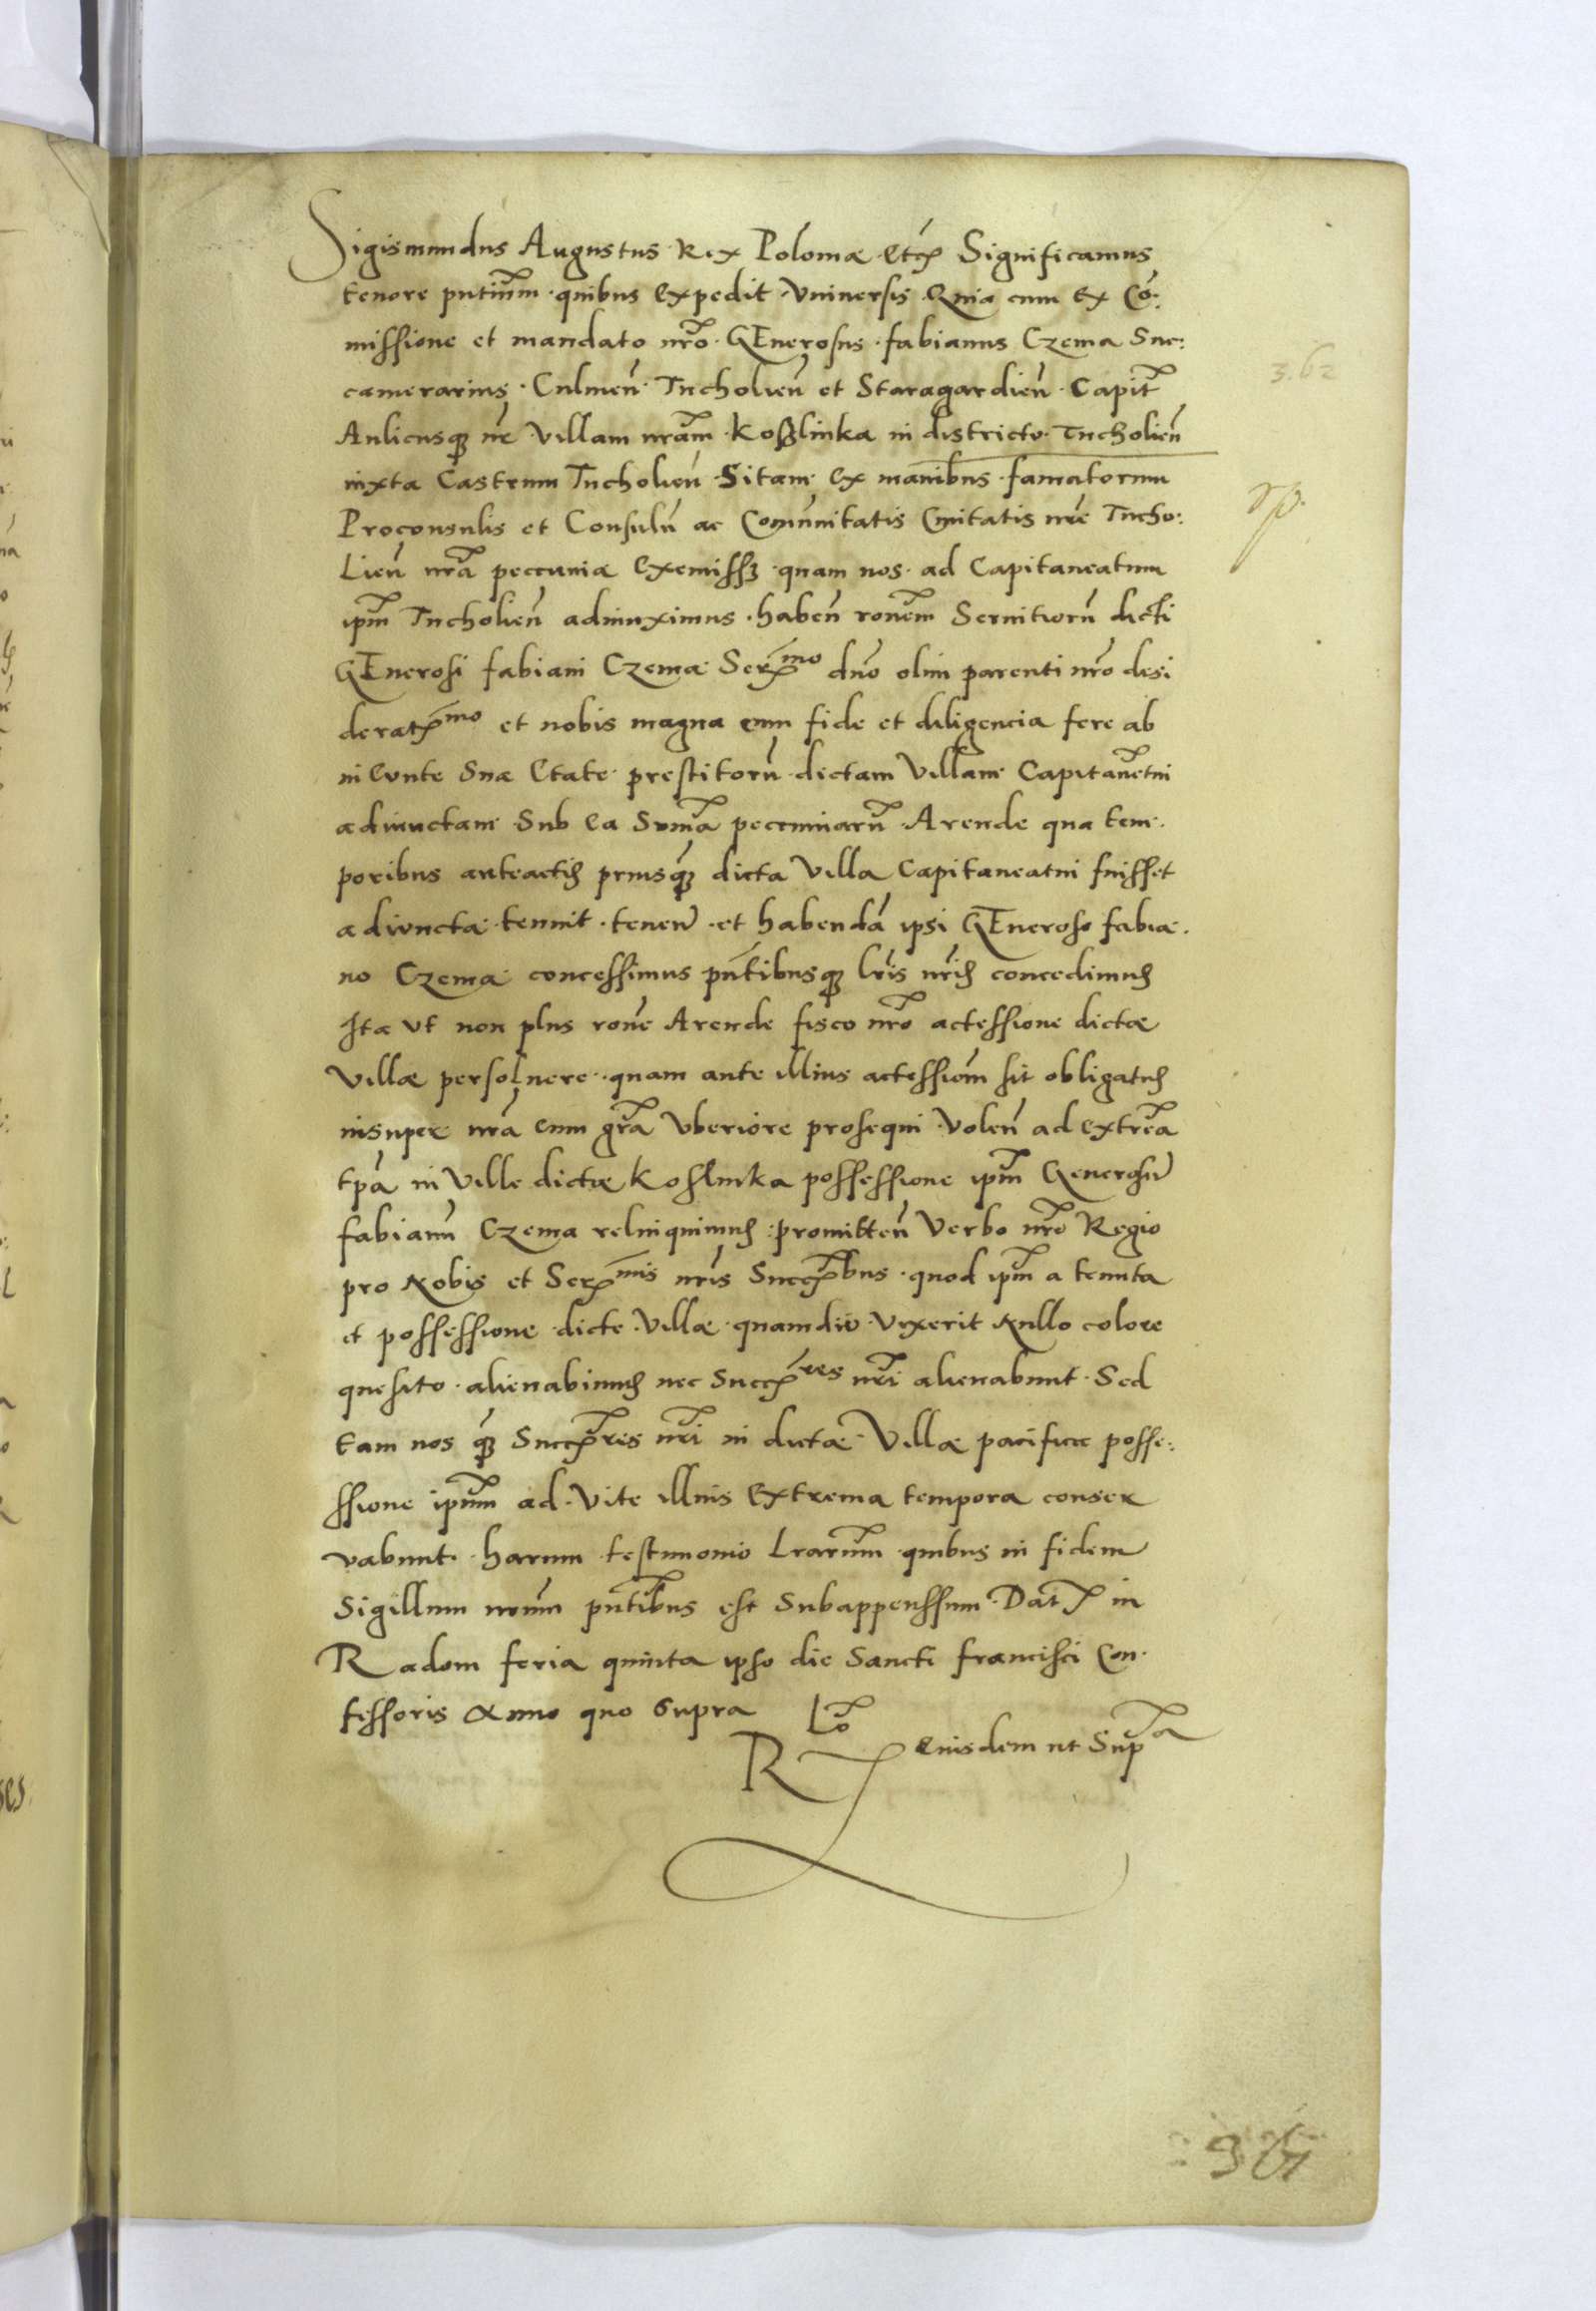 Sigismundus Augustus Rex Poloniæ etc Significamus
tenore pntium quibus expedit Vniuersis Quia cum ex Co:
missione et mandato nro GEnerosus fabianus Czema Suc:
camerarius Culmen Tucholien et Staragardien Capit
Aulicusq nr Villam nram Koszlinka in districtu Tucholien
iuxta Castrum Tucholien Sitam ex manibus famatorum
Proconsulis et Consulu ac Comunitatis Ciuitatis nre Tucho:
Lien nra peccunia exemissz quam nos ad Capitaneatum
ipm Tucholien adiunximus haben ronem Seruitioru dicti
GEnerosi fabiani Czema Sermo dno olim parenti nro desi
deratmo et nobis magna cum fide et diligencia fere ab
in eunte Sua Etate prestitoru dictam Villam Capitanetui
adiunctam Sub ea Suma peccuniaru Arende qua tem.
poribus anteactis priusq dicta Villa Capitaneatui fuisset
adiuncta tenuit tenen et habenda ipsi GEneroso fabia.
no Czema concessimus pntibusq lris nris concedimus
Ita vt non plus rone Arende fisco nro actessione dictæ
Villæ persoluere quam ante illius actessiom sit obligatus
insuper nra cum gra Vberiore prosequi Volen ad extrea
tpa in Ville dictæ Koslinka possessione ipm Generosu
fabianu Czema relinquimus promitten Verbo nro Regio
pro Nobis et Sermis nris Succbus quod ipm a tenuta
et possessione dicte Villæ quamdiu Vixerit Nullo colore
quesito alienabimus nec Succres nri alienabunt Sed
tam nos q Succres nri in dictæ Villæ pacifica posse:
ssione ipsum ad Vite illius extrema tempora conser
vabunt harum testimonio Lrarum quibus in fidem
Sigillum nrum pntibus est Subappenssum Dat in
Radom feria quinta ipso die Sancti francisci Con
fessoris Anno quo Supra Lo
R Eiusdem ut Supa
3.62